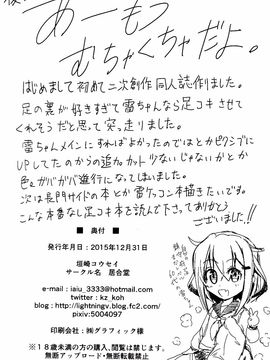 あーもう
むちゃくちゃだよ。
はじめまして初めて二次創作同人誌作りました。
足の裏が好きすぎて雷ちゃんなら足コキさせて
くれそうだと思って突っ走りました。
雷ちゃんメインにすればよかったのではとかピクシブに
UPしてたのからの追加カット少ないじゃないかとか
色々ガバガバ進行になってしまいました。
次は長門サイドの本とか雷ケッコン本描きたいです。
こんな本番なし足コキ本と読んで下さってありがとう
ございました!!
■ 奥付 ■
発行年月日:2015年12月31日
垣崎コウセイ
サークル名 居合堂
e-mail : iaiu_3333@hotmail.com
twitter : kz_koh
blog : http://lightningv.blog.fc2.com/
pixiv:5004097
印刷会社:㈱グラフィック様
※18歳未満の方の購入、閲覧は禁じます。
無断アップロード・無断転載禁止